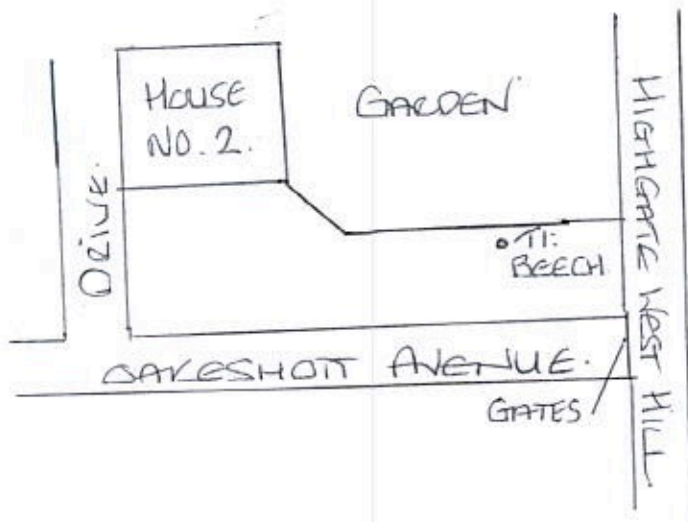 HOUSE
NO. 2.
GARDEN
DRIVE.
T1:
BEECH
HIGHGATE WEST HILL
OAKESHOTT AVENUE.
GATES